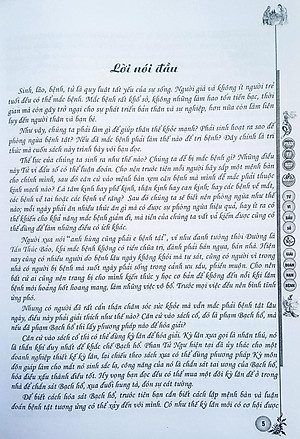 Lời nói đầu
Sinh, lão, bệnh, tử là quy luật tất yếu của sự sống. Người già và không ít người trẻ
tuổi đều có thể mắc bệnh. Mắc bệnh rất khổ sở, không những làm hao tốn tiền bạc, thời
gian mà còn gây trở ngại cho sự phát triển bản thân và sự nghiệp, hơn nữa còn làm liên
lụy đến người thân và bạn bè.
Như vậy, chúng ta phải làm gì để giúp thân thể khỏe mạnh? Phải sinh hoạt ra sao để
phòng ngừa bệnh tật? Nếu đã mắc bệnh phải làm thế nào để trị bệnh? Đây chính là tri
thức mà cuốn sách này trình bày với bạn đọc.
Thể lực của chúng ta sinh ra như thế nào? Chúng ta dễ bị mắc bệnh gì? Những điều
này Tử vi đẩu số có thể luận đoán. Cho nên trước tiên mỗi người hãy lập một mệnh bàn
cho chính mình, sau đó căn cứ vào mệnh bàn xem căn bệnh mà mình dễ mắc phải thuộc
kinh mạch nào? Là tâm kinh hay phế kinh, thận kinh hay can kinh; hay các bệnh về mắt,
các bệnh về tai hoặc các bệnh về răng? Sau đó chúng ta sẽ biết nên phòng ngừa như thế
nào; mỗi ngày phải ăn nhiều thức ăn gì mà có được sự phòng ngừa hiệu quả, hay ít ra có
thể khiến cho khả năng mắc bệnh giảm đi, mà tiền của chúng ta vất vả kiếm được cũng có
thể dùng để làm những việc có ý nghĩa.
Người xưa nói "anh hùng cũng phải e bệnh tật", ví như danh tướng thời Đường là
Tần Thúc Bảo, khi mắc bệnh không có tiền chữa trị, đành phải bán ngựa, bán nhà. Hiện
nay cũng có nhiều người do bệnh lâu ngày không khỏi mà tự sát, cũng có người vì trong
nhà có người bị bệnh mà suốt ngày phải sống trong cảnh ưu sầu, phiền muộn. Cho nên
cái ai cũng nên có trong mình kiến thức y học cơ bản để không đến nỗi khi lâm
bệnh mới hoảng hốt hoang mang, làm những việc vô bổ. Trước mọi việc đều nên bình tĩnh
ứng phó.
Nhưng có người đã rất cẩn thận chăm sóc sức khỏe mà vẫn mắc phải bệnh tật lâu
ngày, điều này phải giải thích như thế nào? Căn cứ vào sách cổ, đó là phạm Bạch hổ, mà
nếu đã phạm Bạch hổ thì lấy phương pháp nào để hóa giải?
Căn cứ vào sách cổ thì có thể dùng kỳ lân để hóa giải. Kỳ lân xưa gọi là nhân thú, nó
là thần khí duy nhất để khắc chế Bạch hổ. Phan Tử Ngư hiện tại đã ủy thác cho một
doanh nghiệp thiết kế kỳ lân, lại chiếu theo sách xưa có thể dùng phương pháp Kỳ môn
độn giáp làm cho mắt nó sinh sắc lạ, công năng của nó là chấn sát tai ương của Bạch hổ,
hóa điềm xấu thành điều tốt. Hy vọng bạn đọc đều có thể mua một đôi kỳ lân để ở trong
nhà để chấn sát Bạch hổ, xua đuổi hung tà, đón sự cát tường.
Để biết cách hóa sát Bạch hổ, trước tiên bạn cần biết cách lập mệnh bàn và luận
đoán bệnh tật tương ứng có thể xảy đến với mình. Có như thế kỳ lân mới có cơ hội được
5